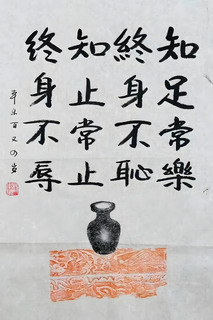 知足常樂
終身不恥
知止常止
終身不辱
辛未百又四岁